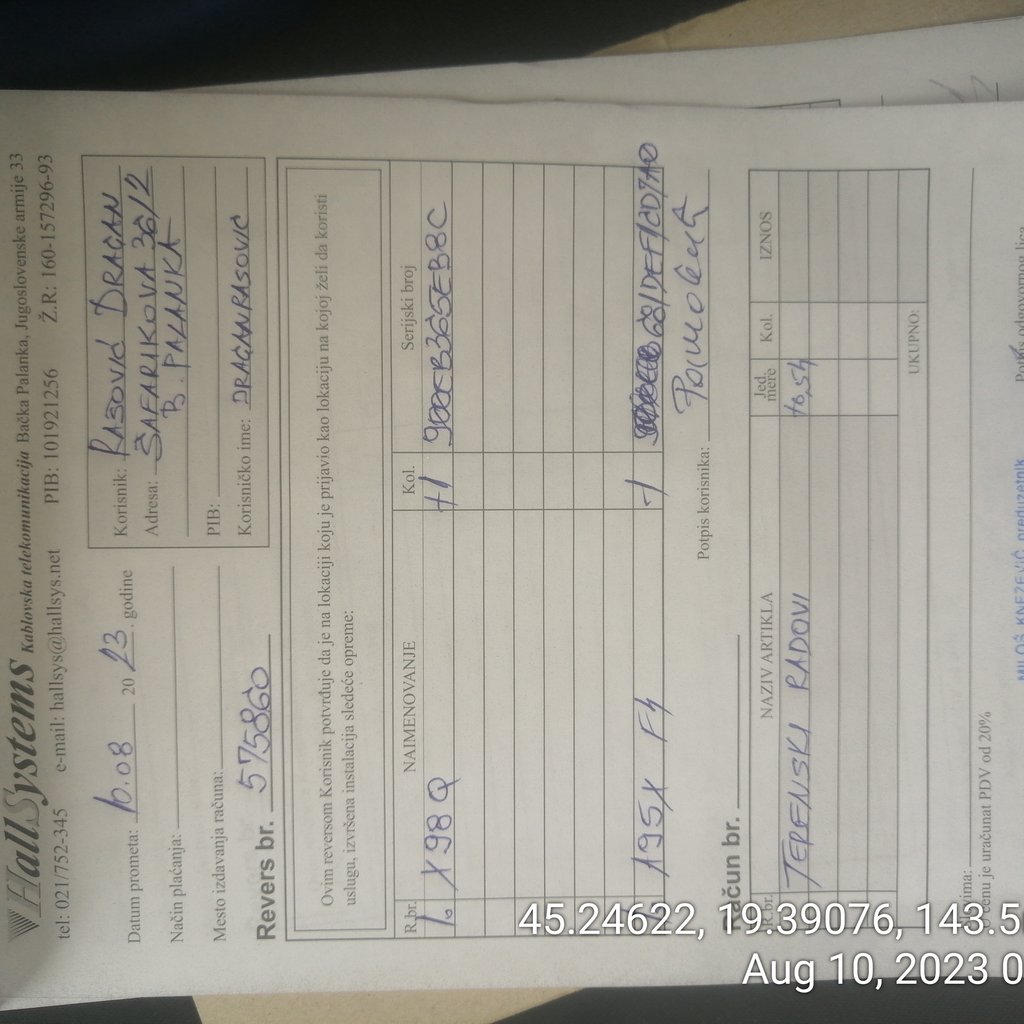 HallSystems Kablovska telekomunikacija Bačka Palanka, Jugoslovenske armije 33
tel: 021/752-345 e-mail: hallsys@hallsys.net PIB: 101921256 Ž.R: 160-157296-93
Datum prometa: 10.08 20 23. godine
Način plaćanja:
Mesto izdavanja računa:
Revers br. 575860
Korisnik: RAŠOVIĆ DRAGAN
Adresa: ŠAFARIKOVA 36/2
B. PALANKA
PIB:
Korisničko ime: DRAGANRASOVIC
Ovim reversom Korisnik potvrđuje da je na lokaciji koju je prijavio kao lokaciju na kojoj želi da koristi
uslugu, izvršena instalacija sledeće opreme:
R.br. NAIMENOVANJE Kol. Serijski broj
1. X98Q +1
A95X F4 -1
Potpis korisnika:
Račun br.
R.br. NAZIV ARTIKLA Jed. mere Kol. IZNOS
TERENSKI RADOVI
UKUPNO:
cenu je uračunat PDV od 20%
odgovornog lica
MILOŠ KNEŽEVIĆ preduzetnik
45.24622, 19.39076, 143.5
Aug 10, 2023 0